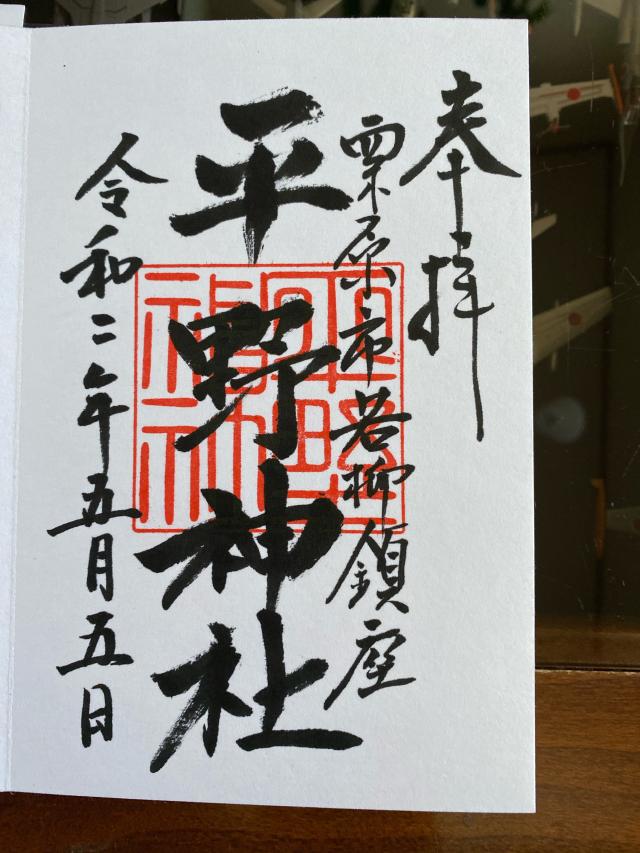 奉拝
栗原市若柳鎮座
平野神社
令和二年五月五日